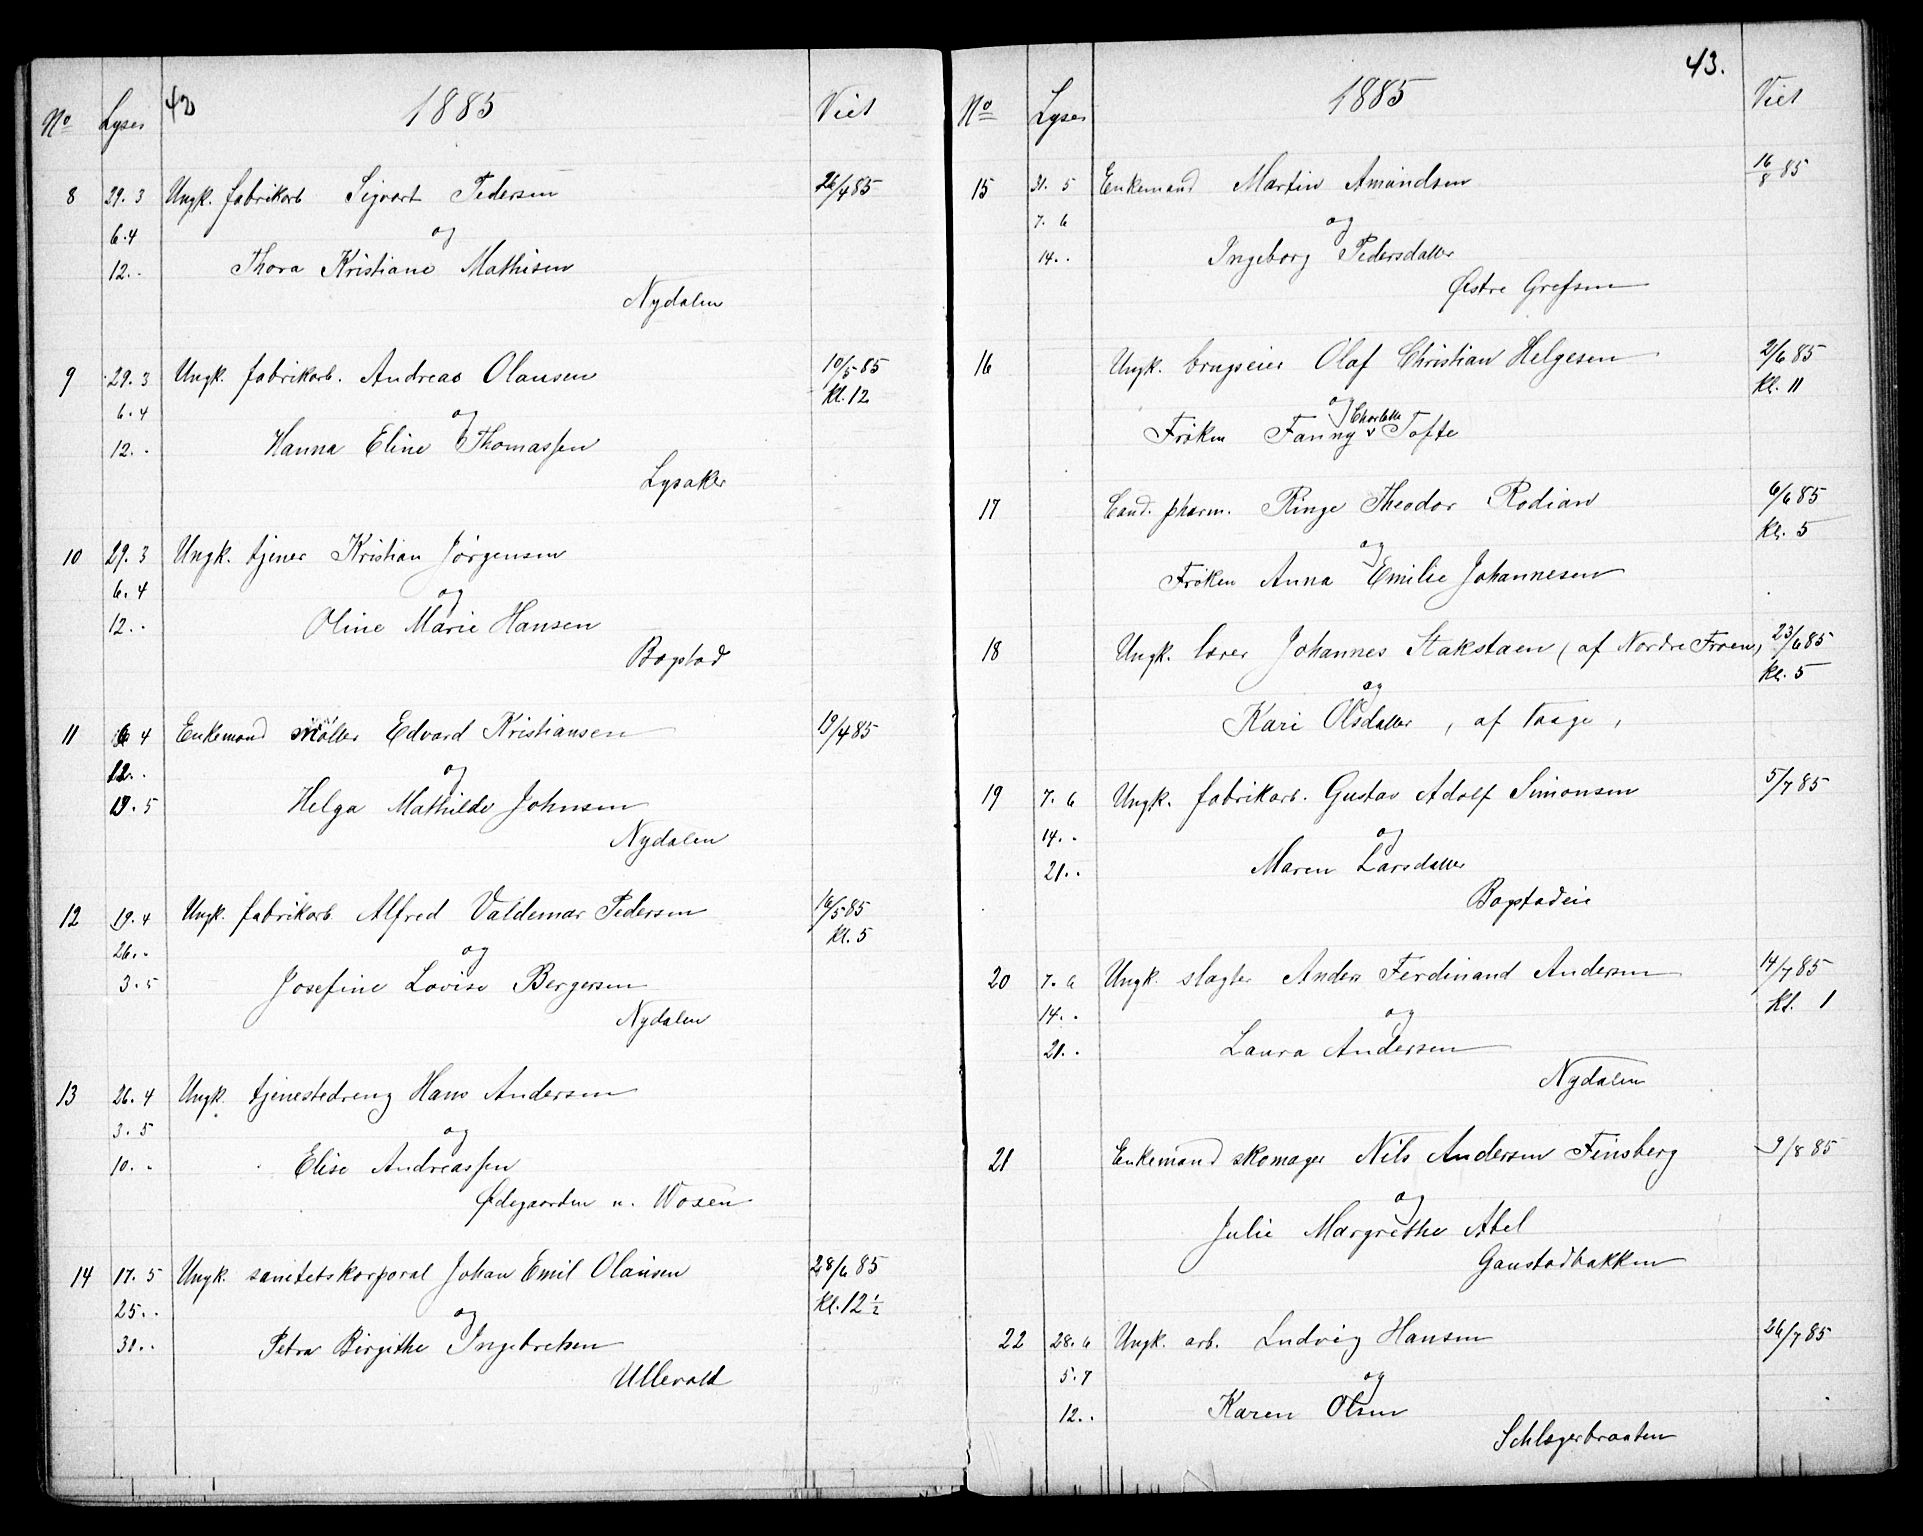 42
1885
No Lyser Viet
8 29. 3 Ungk. fabrikarb Sigvart Pedersen 26/4 85
6. 4 og
12. - Thora Kristiane Mathisen
Nydalen
9 29. 3 Ungk. fabrikarb. Andreas Olausen 10/5 85
6. 4 og Kl. 12
12. - Hanna Eline Thomassen
Lysaker
10 29. 3 Ungk. tjener Kristian Jörgensen
6. 4 og
12. - Oline Marie Hansen
Bogstad
11 6 4 Enkemand möller Edvard Kristiansen 19/4 85
12. - og
19. 5 Helga Mathilde Johnsen
Nydalen
12 19. 4 Ungk. fabrikarb. Alfred Valdemar Pedersen 16/5 85
26. - og Kl. 5
3. 5 Josefine Lovise Bergersen
Nydalen
13 26. 4 Ungk. tjenestedreng Hans Andersen
3. 5 og
10. - Elise Andreassen
Ødegaarden u. Woxen
14 17. 5 Ungk. sanitetskorporal Johan Emil Olausen 28/6 85
25. - og Kl. 12 ½
30. - Petra Birgithe Ingebretsen
Ullevold
43.
1885
No Lyser Viet
15 31. 5 Enkemand Martin Amundsen 16/8 85
7. 6 og
14. - Ingeborg Pedersdatter
Østre Grefsen
16 Ungk. brugseier Olaf Christian Helgesen 2/6 85
og Kl. 11
Frøken Fanny Charlotte Tofte
17 Cand. pharm. Ringe Theodor Rodian 6/6 85
og Kl. 5
Frøken Anna Emilie Johannesen
18 Ungk. lærer Johannes Stakstaen (af Nordre Froen) 23/6 85
og Kl. 5
Kari Olsdatter , af Vaage ,
19 7. 6 Ungk. fabrikarb. Gustav Adolf Simonsen 5/7 85
14. - og
21. - Maren Larsdatter
Bogstadeie
20 7. 6 Ungk. slagter Anders Ferdinand Andersen 14/7 85
14. - og Kl. 1
21. - Laura Andersen
Nydalen
21 Enkemand skomager Nils Andersen Finsberg 9/8 85
og
Julie Margrethe Abel
Gaustadbakken
22 28. 6 Ungk. arb. Ludvig Hansen 26/7 85
5. 7 og
12. - Karen Olsen
Schlegerbraaten